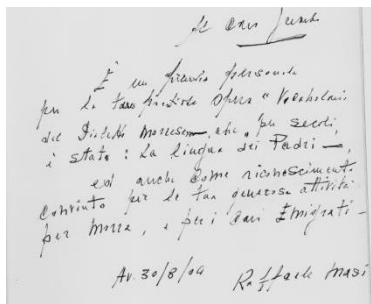 Al Caro
È un premio personale
per la tua preziosa opera "Vocabolario
del Dialetto Morrese", che, per secoli,
è stata: La lingua dei Padri -,
ed anche come riconoscimento
convinto per la tua generosa attività
per Morra, e per i cari Emigrati -
Av. 30/8/04 Raffaele Masi